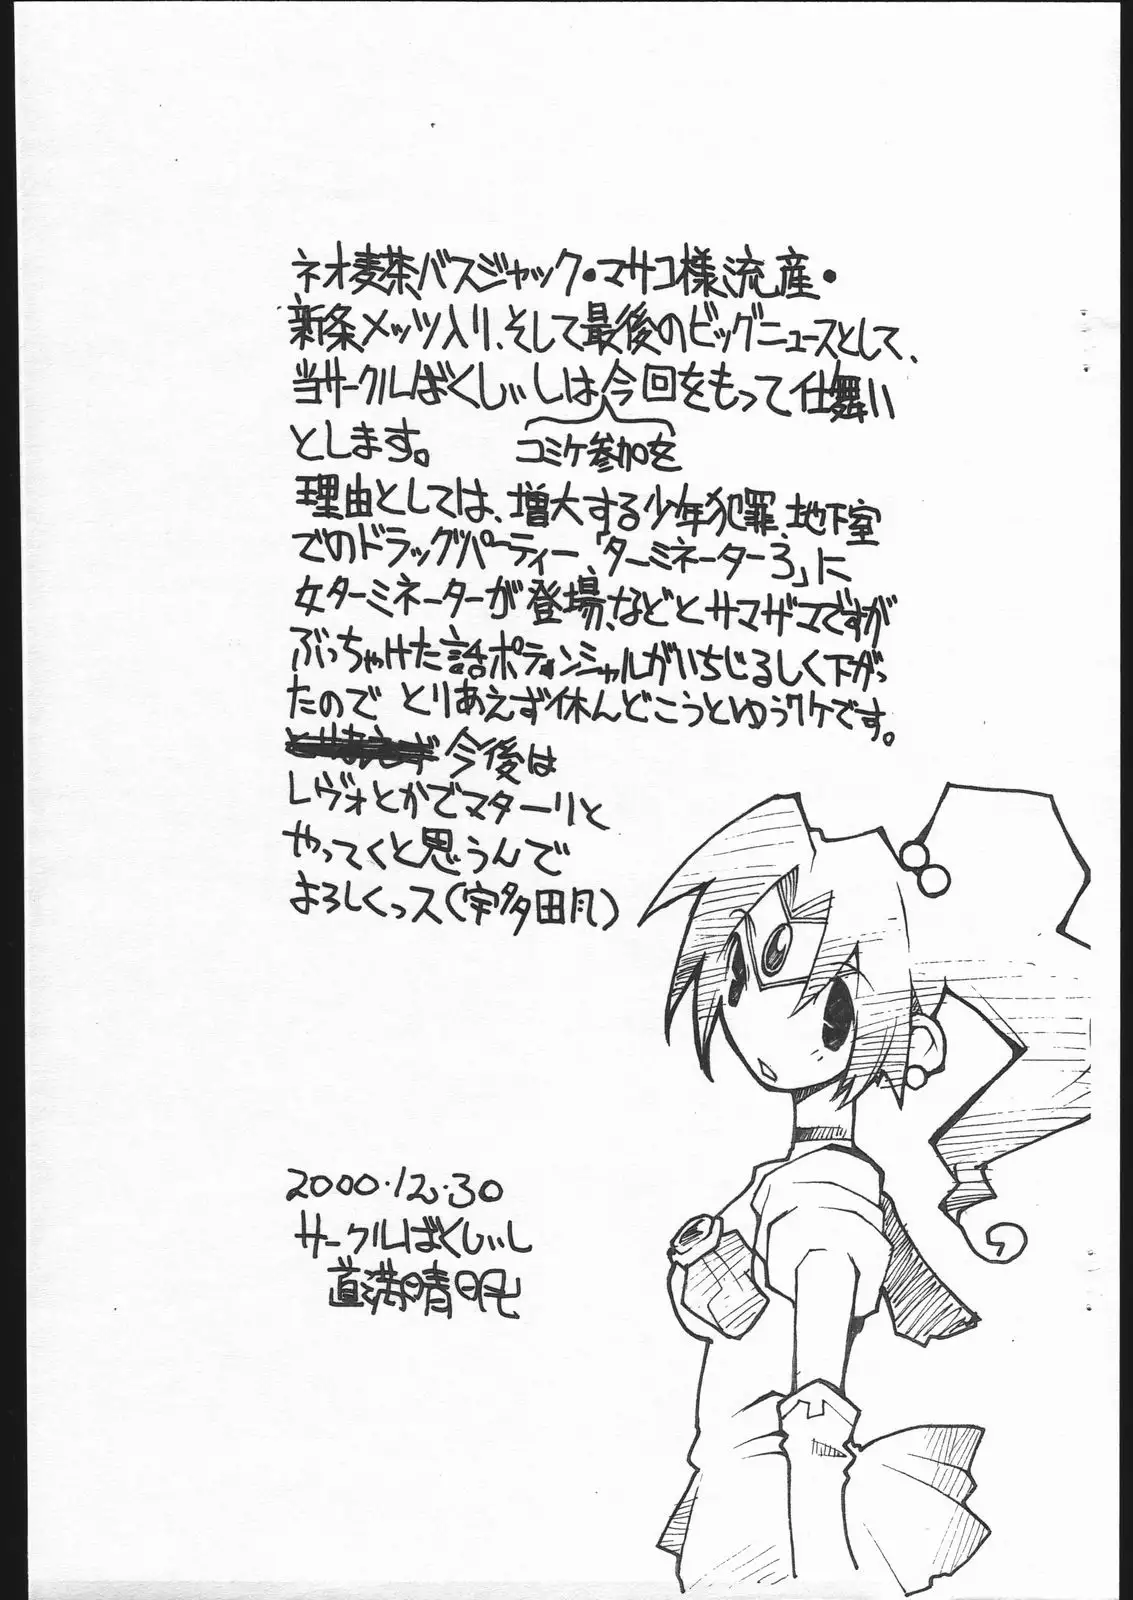 ネオ麦茶バスジャック・マサコ様流産・
新条メッツ入り、そして最後のビッグニュースとして、
当サークルばくしぃしは今回をもって仕舞い
とします。
コミケ参加を
理由としては、増大する少年犯罪、地下室
でのドラッグパーティー、「ターミネーター3」に
女ターミネーターが登場、などとサマザマですが
ぶっちゃけた話ポテンシャルがいちじるしく下がっ
たので とりあえず休んどこうとゆうワケです。
今後は
レヴォとかでマターリと
やってくと思うんで
よろしくっス(宇多田凡)
2000.12.30
サークルばくしぃし
道満晴明